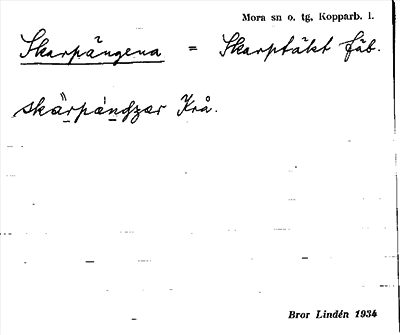 Mora sn o. tg, Kopparb. l.
Skarpängena = Skarptäkt fäb.
skàrpǽndzar Krå.
Bror Lindén 1934